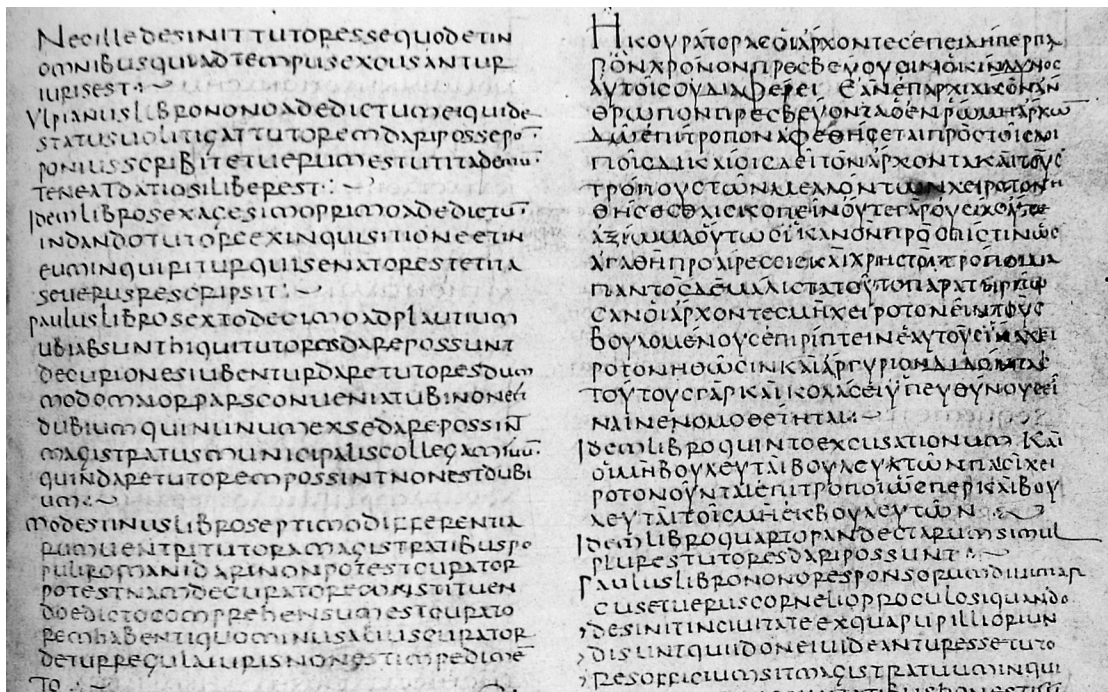 Necilledesinittutoressequodetin
omnibusquiadtempusexcusantur
iurisest
Ulpianuslibrononoadedictumeiquide
statusuolitigattutoremdaripossepo
poniusscribitetuerumestutitademū
teneatdatiosiliberest
Idemlibrosexagesimoprimoadedictū
indandotutoreexinquisitioneetin
euminquiriturquisenatorestetita
seuerusrescripsit
Pauluslibrosextodecimoadplautium
ubiabsunthiquitutoresdarepossunt
decurionesiubenturdaretutoresdum
modomaiorparsconueniatubinonest
dubiumquinunumexsedarepossint
magistratusmunicipaliscollegamsuū
quindaretutorempossintnonestdubi
um
Modestinuslibroseptimodifferentia
rumuentritutoramagistratibuspo
puliromanidarinonpotestcurator
potestnamdecuratoreconstituen
doedictocomprehensumestcurato
remhabentiquominusaliuscurator
deturregulaiurisnonestimpedimē
to
Ηικουρατοραςοιαρχοντεςεπειδηπερπα
ροντωνπρεσβευουσινοκινδυνος
αυτοιςουδιαφερειεανεπαρχιακονἀν
θρωπονπρεσβευονταενρωμηαρχω
δωεπιτροποναφεθησεταιπροςτοιςλοι
ποιςδικαιοιςδειτοναρχοντακαιτους
τροπουςτωνμελλοντωνχειροτονη
θησεσθαισκοπεινουτεγαρουσιαουτε
αξιωμαουτωςικανονπροςπιστινως
αγαθηπροαιρεσιςκαιχρηστοιτροποιμα
παντοςδεμαλισταтουτοπαρατηρειτω
σανοιαρχοντεςμηχειροτονειντους
βουλομενουςεπιρριπτεινεαυτουςιναχει
ροτονηθωσινκαιαργυριονδιδοντας
τουτουςγαρκαικολασειυπευθυνουςει
ναινενομοθετηται
Idemlibroquintoexcusationum Και
οιμηβουλευταιβουλευτωνπαισιχει
ροτονουνταιεπιτροποιωσπερκαιβου
λευταιτοιςμηεκβουλευτων
Idemlibroquartopandectarumsimul
plurestutoresdaripossunt
Pauluslibrononoresponsorumdiuimar
cusetueruscornelioproculosiquando
desinitinciuitateexquapupillioriun
disuntquidoneiuideanturessetuto
resofficiumsitmagistratuuminqui